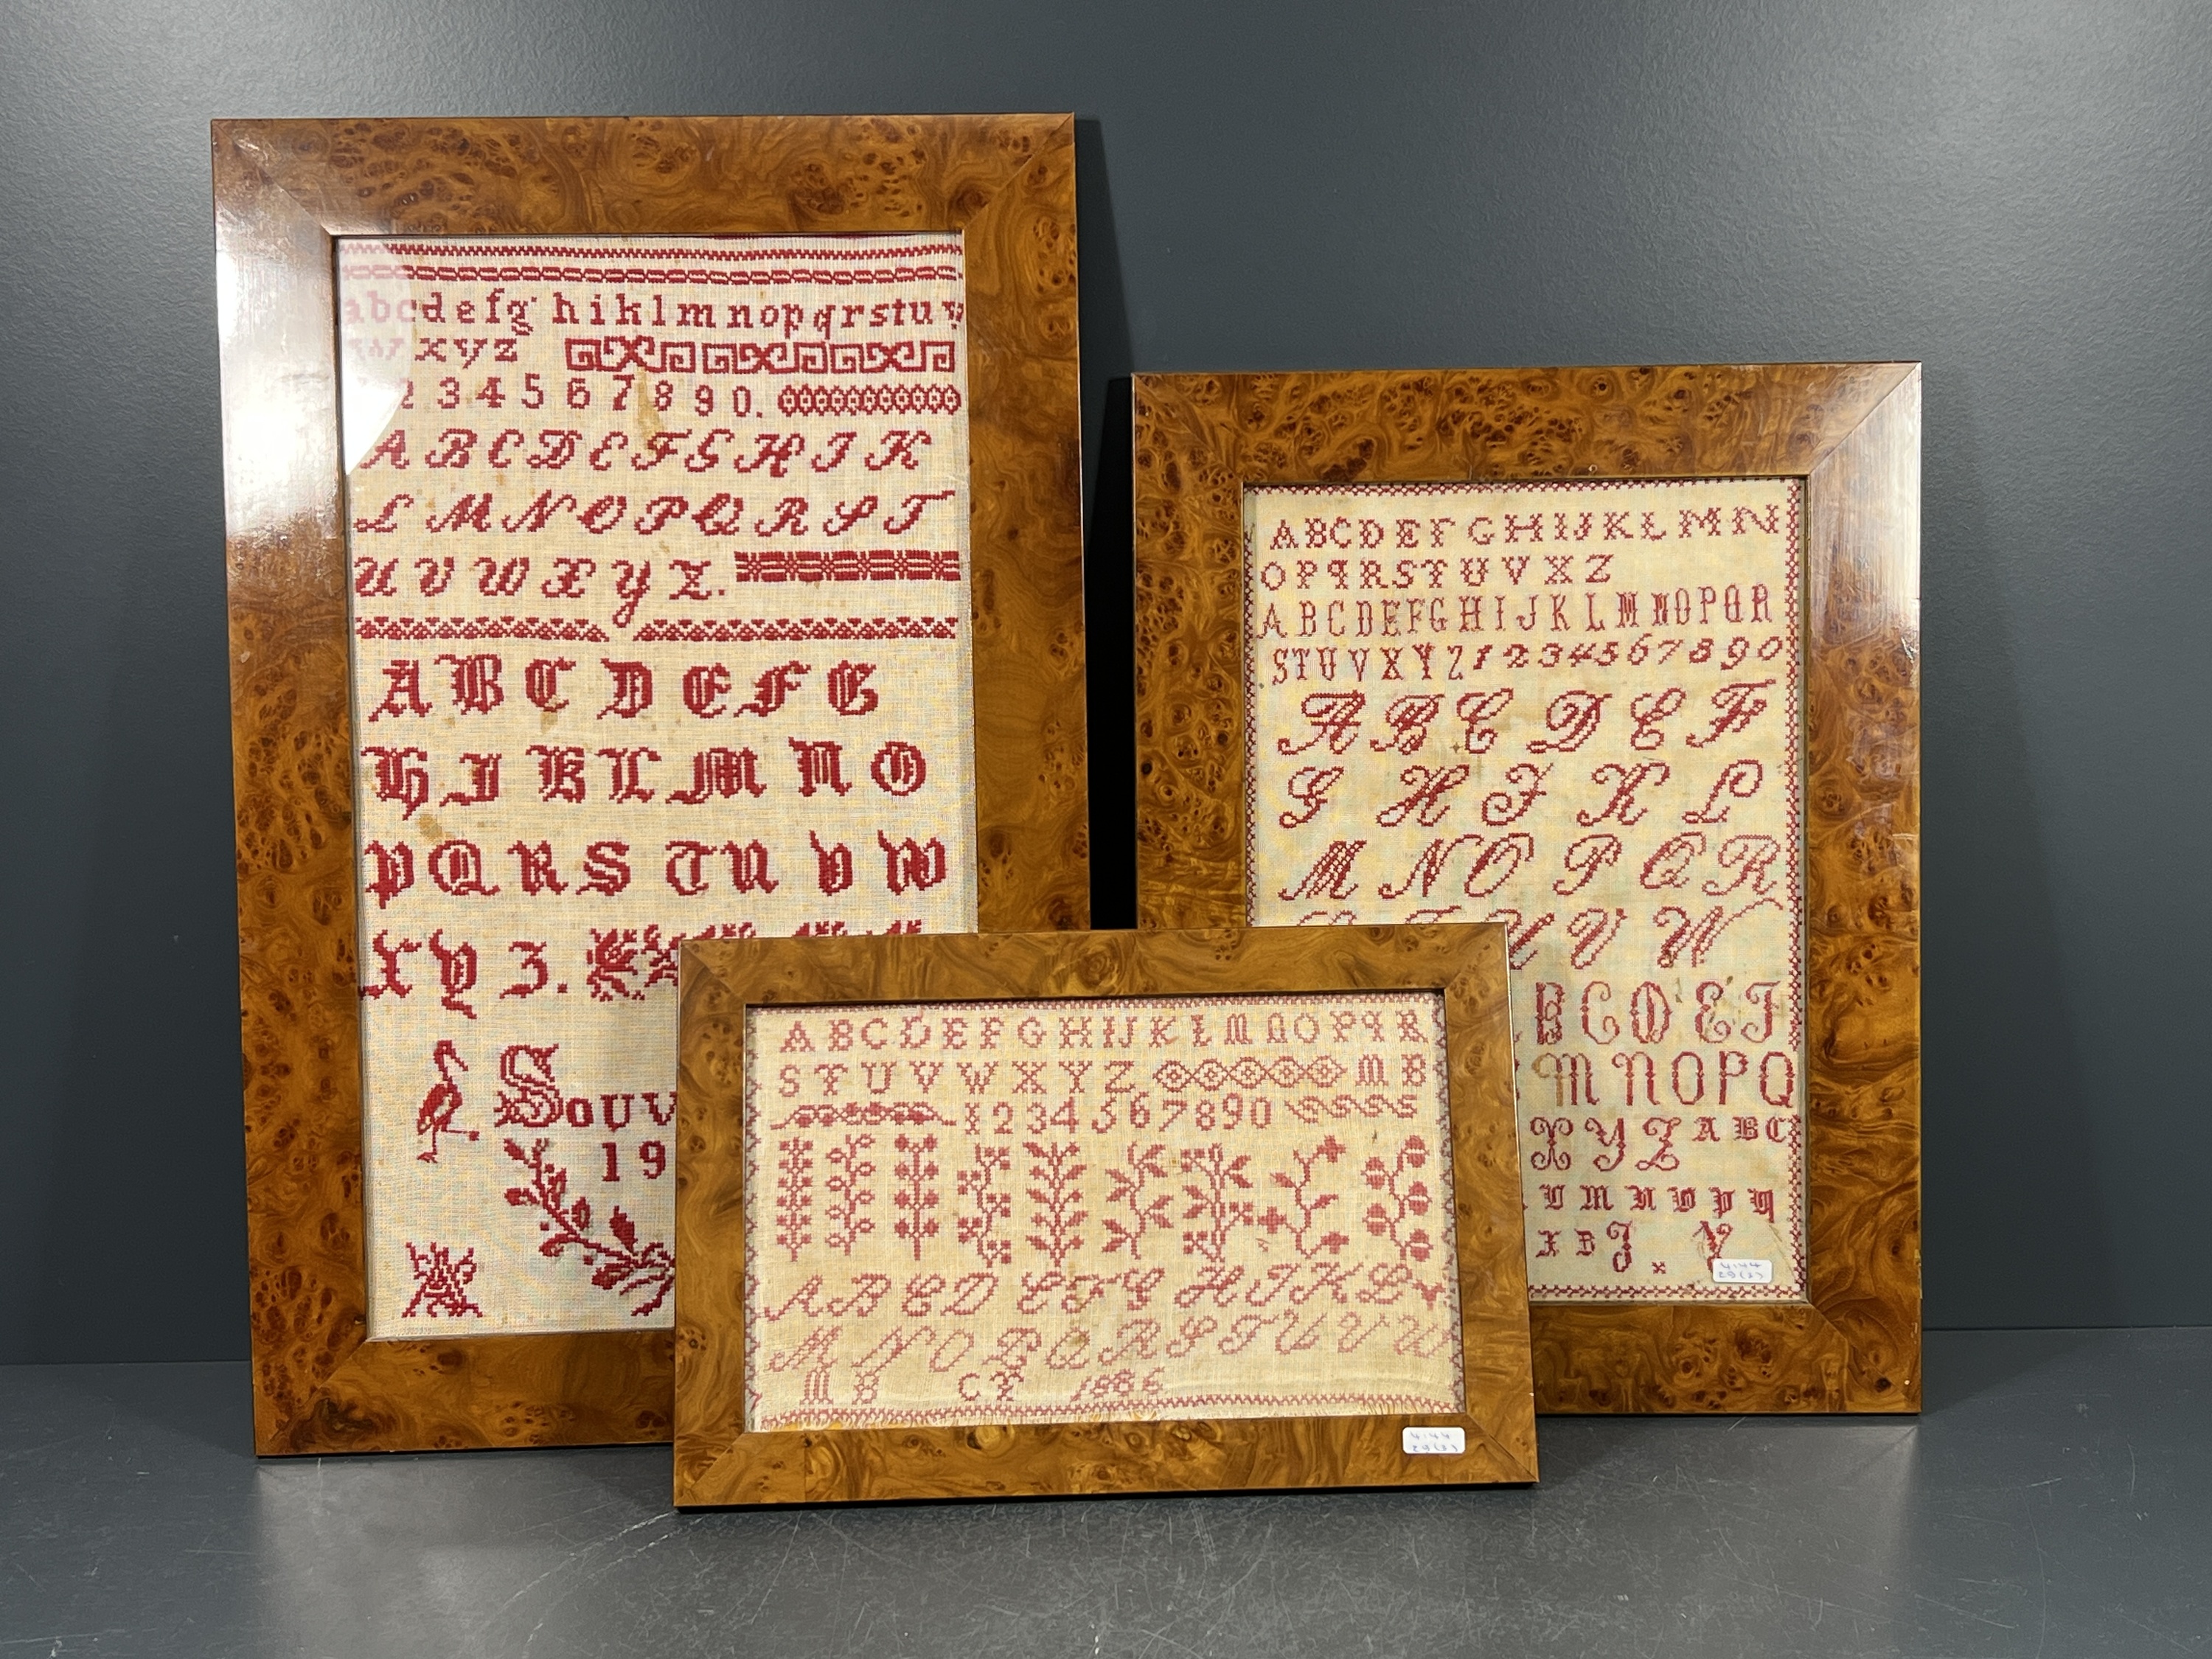 abcdefg hiklmnopqrstuv
w xyz
2 3 4 5 6 7 8 9 0.
A B C D E F G H I K
L M N O P Q R S T
U V W X Y Z.
A B C D E F G
H I K L M N O
P Q R S T U V W
X Y Z.
Souv
19
A B C D E F G H I J K L M N
O P q R S T U V X Z
A B C D E F G H I J K L M N O P Q R
S T U V X Y Z 1 2 3 4 5 6 7 8 9 0
A B C D E F
G H J K L
M N O P Q R
U V W
B C D E J
M N O P Q
X Y Z A B C
M N O P q
X B J . V
A B C D E F G H I J K L M N O P q R
S T U V W X Y Z M B
1 2 3 4 5 6 7 8 9 0
A B C D E F G H I K L
M N O P Q R S T U V W
M B C X 1886